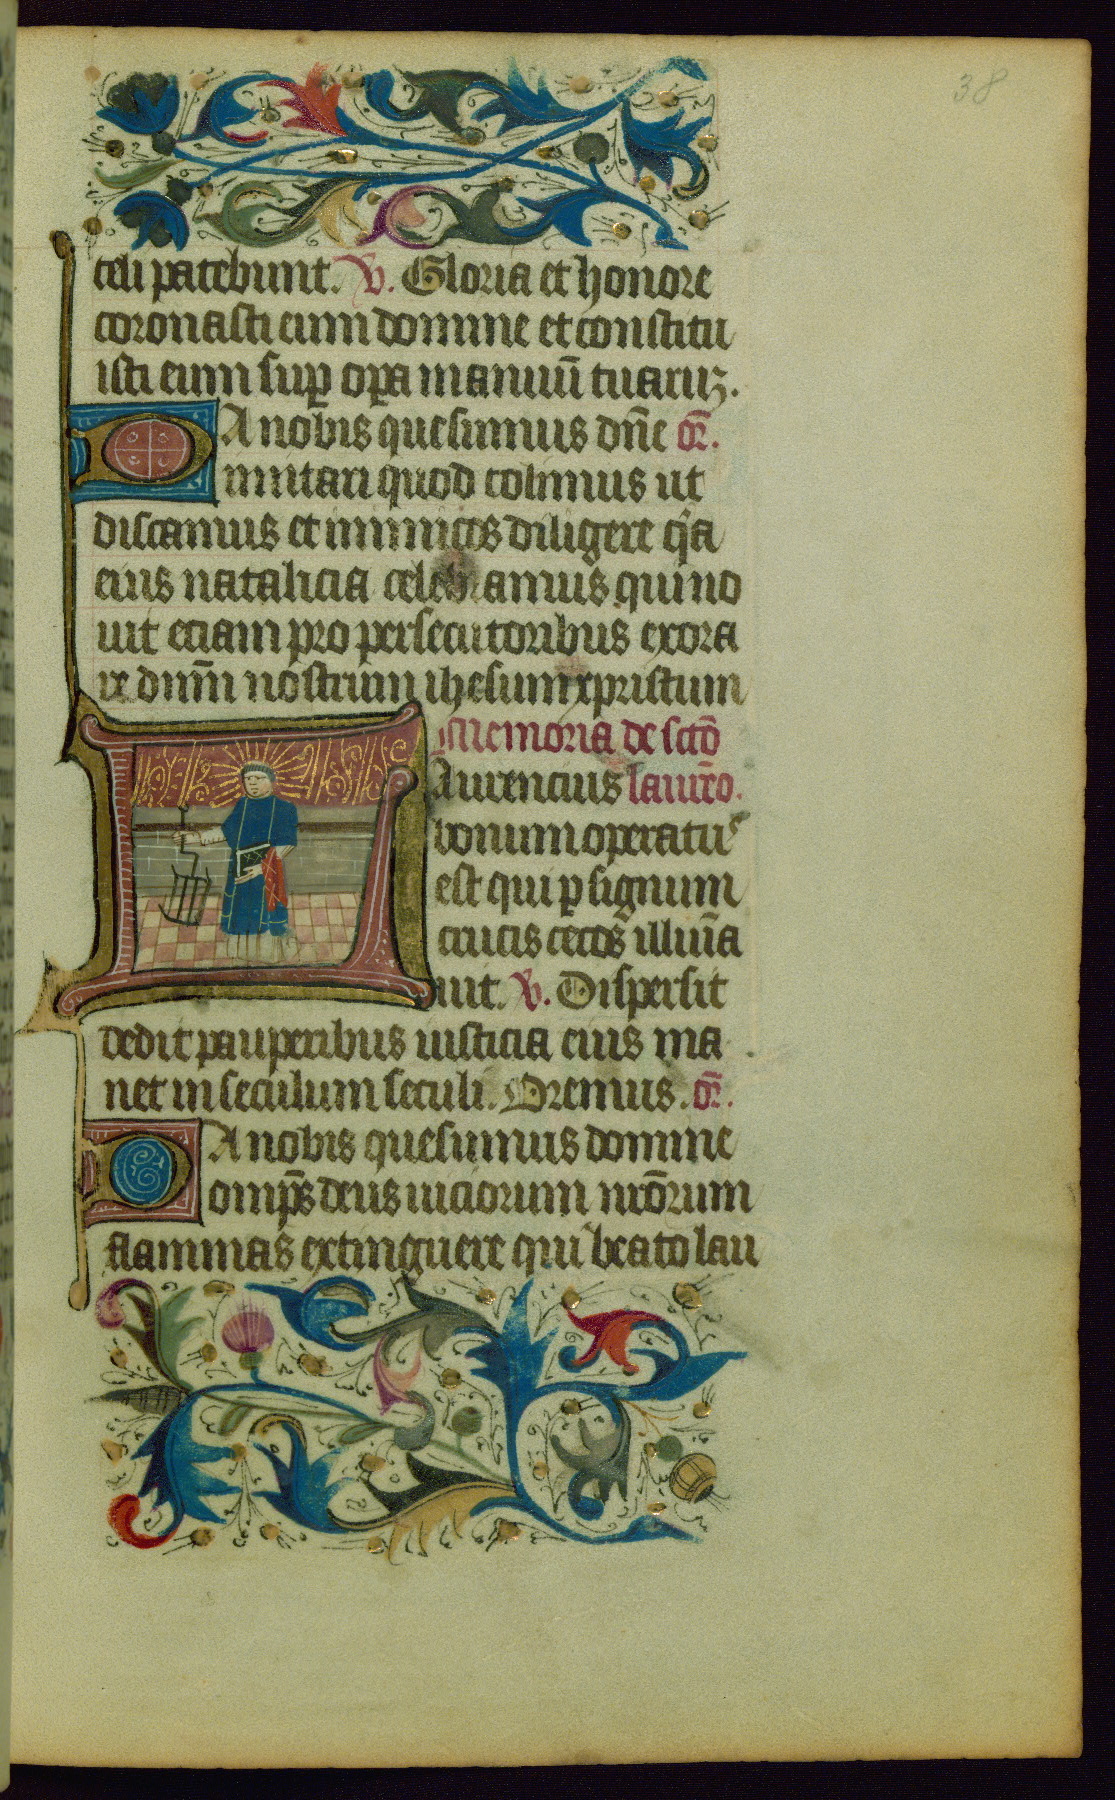 38
celi patebunt. V. Gloria et honore
coronasti eum domine et constitu
isti eum sup opa manuū tuarūz.
DA nobis quesumus dn̄e or̄.
imitari quod colimus ut
discamus et inimicos diligere q̄a
eius natalicia celebramus qui no
uit eciam pro persecutoribus exora
re dnm̄ nostrum ihesum xpristum
Memoria de sctō
Laurencius laurēo.
bonum operatus
est qui p signum
crucis cecos illuīa
uit. V. Dispersit
dedit pauperibus iusticia eius ma
net in seculum seculi. Oremus. or̄.
DA nobis quesumus domine
omp̄s deus uiciorum nr̄orum
flammas extinguere qui beato lau